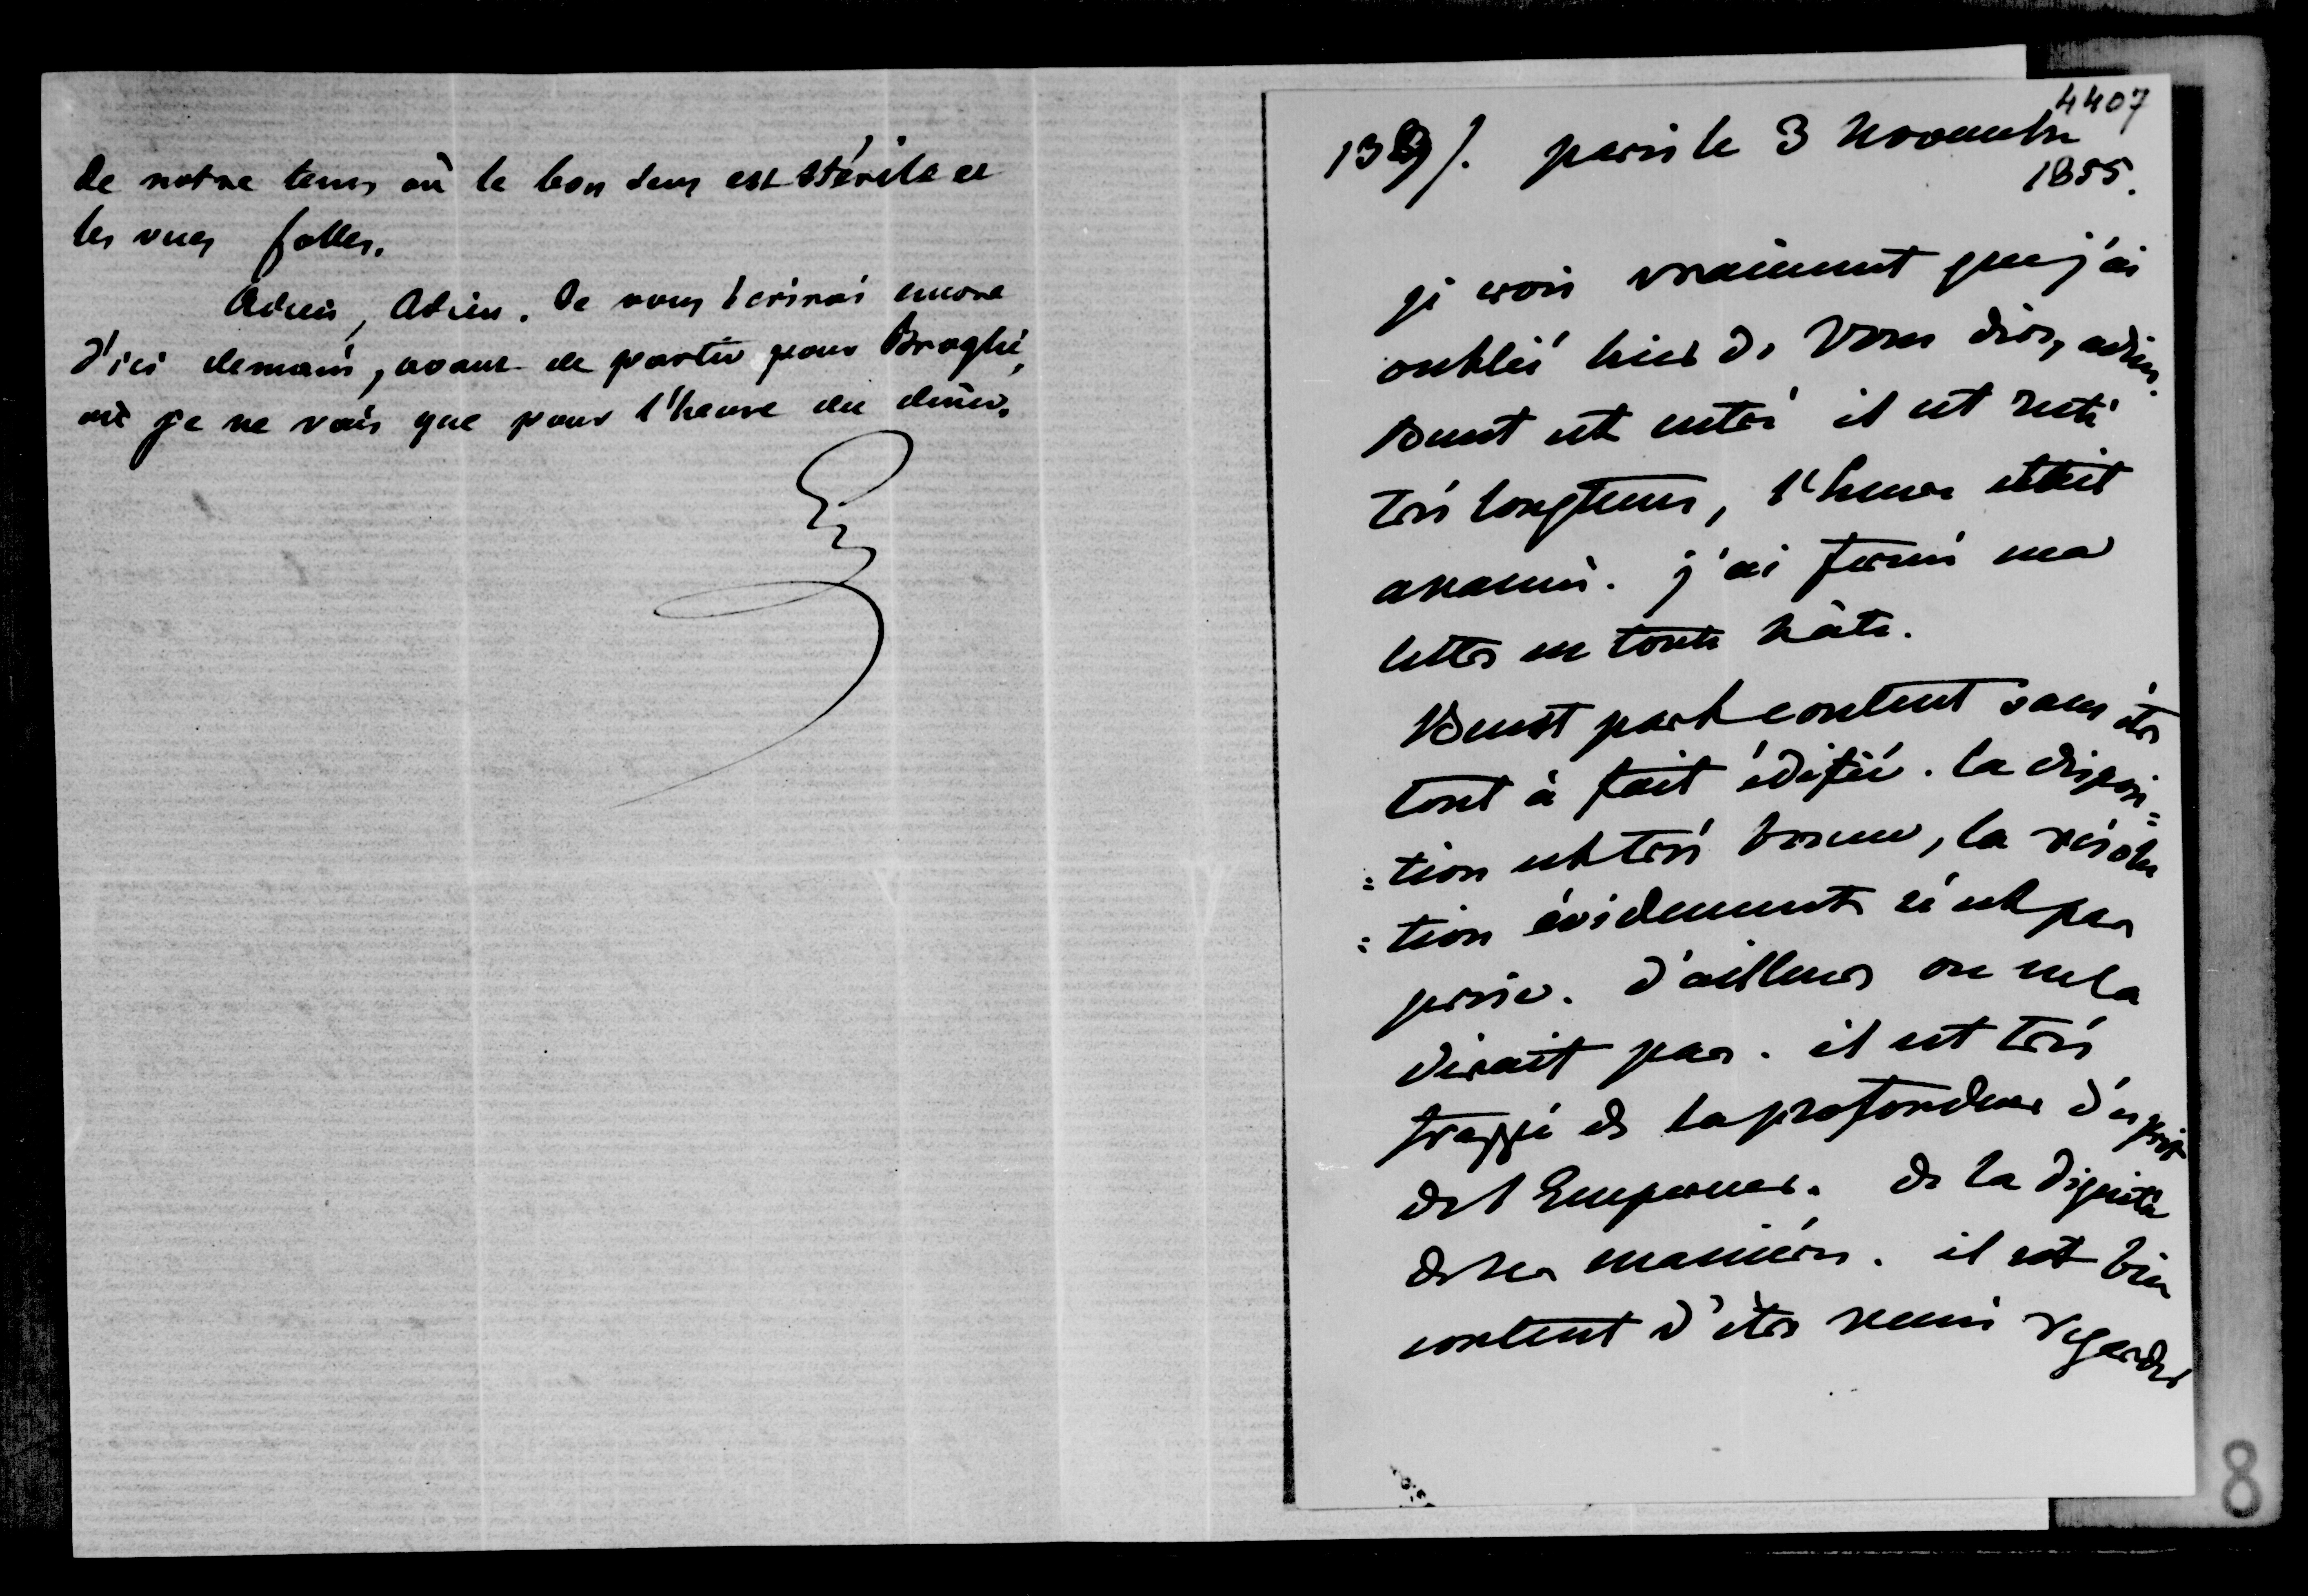 de notre tems où le bon sens est stérile et
les vues folles.
Adieu, Adieu. Je vous écrirai encore
d'ici demain, avant de partir pour Broglie,
où je ne vais que pour l'heure du diner.
4407
139/. paris le 3 novembre
1855.
je crois vraiment que j'ai
oublié hier de vous dire, adieu.
Beust est entré il est resté
très longtems, l'heure était
avancée. j'ai fermé ma
lettre en toute hâte.
Beust part content sans être
tout à fait édifié. la disposi=
=tion est très bonne, la résolu
=tion évidemment n'est pas
prise. d'ailleurs on ne la
dirait pas. il est très
frappé de la profondeur d'esprit
de l'Empereur. de la dignité
de ses manières. il est bien
content d'être venu regarder
8